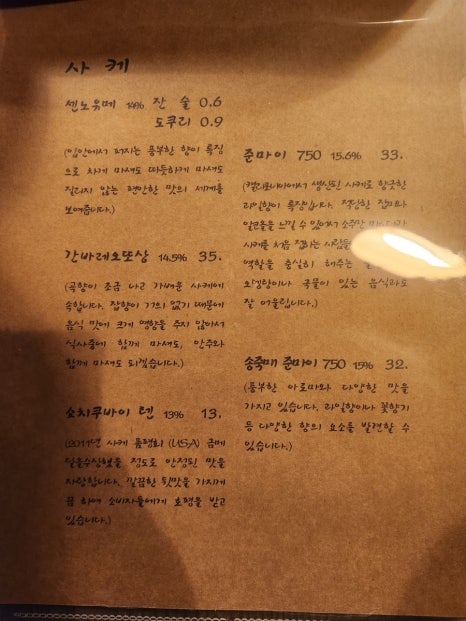 사케
센노유메 14% 잔 술 0.6
도쿠리 0.9
(입안에서 퍼지는 풍부한 향이 특징
으로 차게 마셔도 따뜻하게 마셔도
질리지 않는 편안한 맛의 세계를
보여줍니다.)
간바레오또상 14.5% 35.
(곡향이 조금 나고 가벼운 사케에
속합니다. 잡향이 거의 없기 때문에
음식 맛에 크게 영향을 주지 않아서
식사중에 함께 마셔도, 안주와
함께 마셔도 되겠습니다.)
쇼치쿠바이 렌 13% 13.
(2011년 사케 품평회 (USA) 금메
달을수상했을 정도로 안정된 맛을
자랑합니다. 깔끔한 뒷맛을 가지게
끔 하여 소비자들에게 호평을 받고
있습니다.)
준마이 750 15.6% 33.
(캘리포니아에서 생산된 사케로 향긋한
과일향이 특징입니다. 적당한 감미와
알코올을 느낄 수 있어서 소주만
사케를 처음 접하는 사람들
역할을 충실히 해주는
오뎅탕이나 국물이 있는 음식과도
잘 어울립니다.)
송죽매 준마이 750 15% 32.
(풍부한 아로마와 다양한 맛을
가지고 있습니다. 과일향이나 꽃향기
등 다양한 향의 요소를 발견할 수
있습니다.)